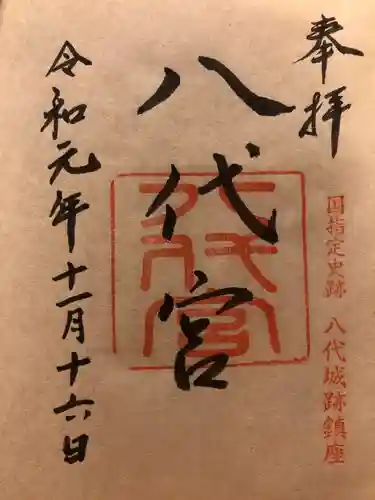 奉拝
国指定史跡 八代城跡鎮座
八代宮
八代宮
令和元年十一月十六日